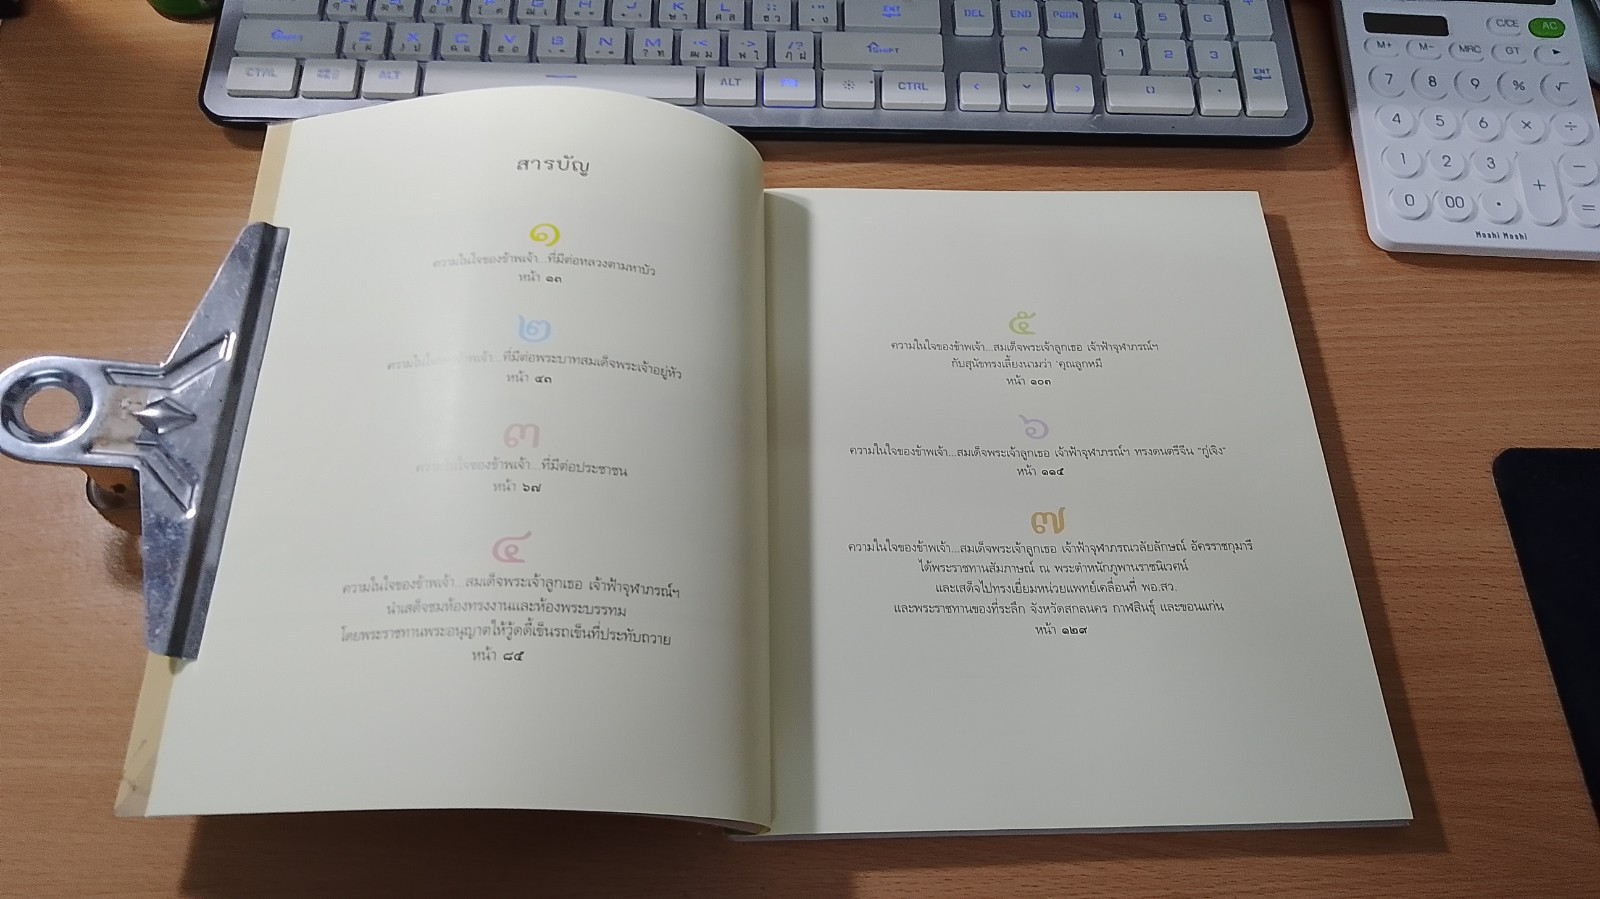 สารบัญ
๑
ความในใจของข้าพเจ้า...ที่มีต่อหลวงตามหาบัว
หน้า ๑๓
๒
ความในใจของข้าพเจ้า...ที่มีต่อพระบาทสมเด็จพระเจ้าอยู่หัว
หน้า ๔๓
๓
ความในใจของข้าพเจ้า...ที่มีต่อประชาชน
หน้า ๖๗
๔
ความในใจของข้าพเจ้า...สมเด็จพระเจ้าลูกเธอ เจ้าฟ้าจุฬาภรณ์ฯ
นำเสด็จชมห้องทรงงานและห้องพระบรรทม
โดยพระราชทานพระอนุญาตให้วู้ดดี้เข็นรถเข็นที่ประทับถวาย
หน้า ๘๕
๕
ความในใจของข้าพเจ้า...สมเด็จพระเจ้าลูกเธอ เจ้าฟ้าจุฬาภรณ์ฯ
กับสุนัขทรงเลี้ยงนามว่า คุณลูกหมี
หน้า ๑๐๓
๖
ความในใจของข้าพเจ้า...สมเด็จพระเจ้าลูกเธอ เจ้าฟ้าจุฬาภรณ์ฯ ทรงดนตรีจีน "กู่เจิง"
หน้า ๑๑๕
๗
ความในใจของข้าพเจ้า...สมเด็จพระเจ้าลูกเธอ เจ้าฟ้าจุฬาภรณวลัยลักษณ์ อัครราชกุมารี
ได้พระราชทานสัมภาษณ์ ณ พระตำหนักภูพานราชนิเวศน์
และเสด็จไปทรงเยี่ยมหน่วยแพทย์เคลื่อนที่ พอ.สว.
และพระราชทานของที่ระลึก จังหวัดสกลนคร กาฬสินธุ์ และขอนแก่น
หน้า ๑๒๙
DEL END PGDN 4 5 6
Z X C V B N M SHIFT 1 2 3 ENT
CTRL ALT ALT CTRL
C/CE AC
M+ M- MRC GT ►
7 8 9 % √
4 5 6 × ÷
1 2 3 + −
0 00 · =
Moshi Moshi